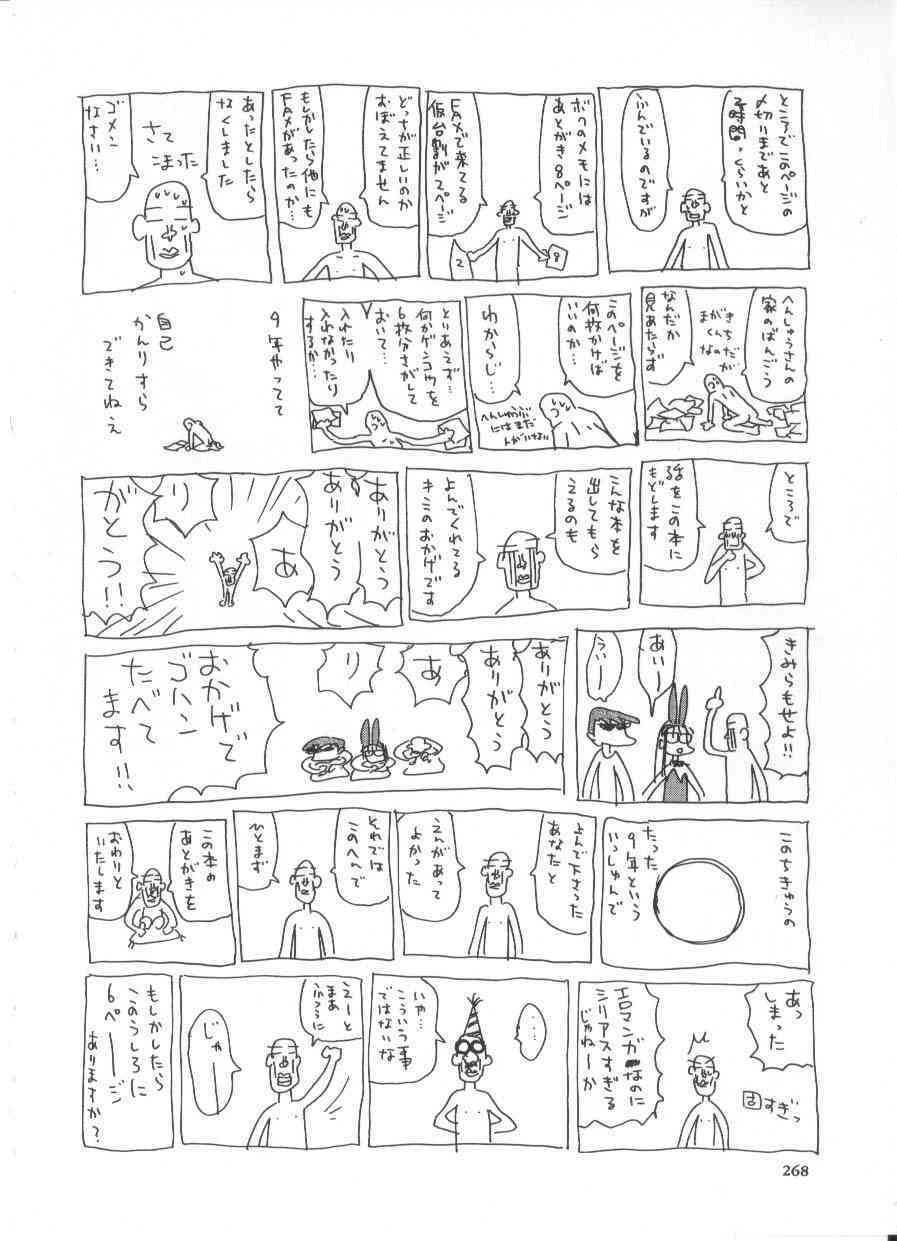 ところでこのページの
〆切りまであと
2時間、くらいかと
ふんでいるのですが
ボクのメモには
あとがき8ページ
FAXで来てる
仮台割が2ページ
2
8
どっちが正しいのか
おぼえてません
もしかしたら他にも
FAXがあったのか…
あったとしたら
なくしました
さて
こまった
ゴメン
なさい…
へんしゅうさんの
家のばんごう
まがきち
くんが
なのだが
なんだか
見あたらず
このページを
何枚かけば
いいのか…
わからじ…
へんしゅうぶ
にはまだ
人がいない
とりあえず…
何かゲンコウを
6枚分さがして
おいて…
入れたり
入れなかったり
するか…
9年やってて
自己
かんりすら
できてねえ
ところで
話をこの本に
もどします
こんな本を
出してもら
えるのも
よんでくれてる
キミのおかげです
ありがとう
ありがとう
あ
り
がとう!!
きみらもせよ!!
あいー
うぃー
ありがとう
ありがとう
あ
り
おかげで
ゴハン
たべて
ます!!
このちきゅうの
たった
9年という
いっしゅんで
よんで下さった
あなたと
えんがあって
よかった
それでは
このへんで
ひとまず
この本の
あとがきを
おわりと
いたします
あっ
しまった
すぎっ
エロマンガなのに
シリアスすぎる
じゃねーか
…
いや…
こういう事
ではないな
えーと
まあ
ふつうに
じゃ
もしかしたら
このうしろに
6ページ
ありますか?
268